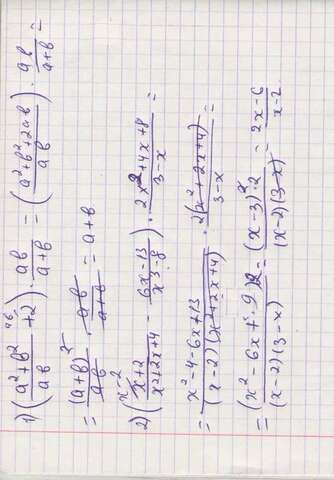 1) ((a²+b²)/(ab) + 2) · (ab)/(a+b) = ((a²+b²+2ab)/(ab)) · (ab)/(a+b) =
= (a+b)²/(ab) · (ab)/(a+b) = a+b
2) ((x+2)/(x²+2x+4) - (6x-13)/(x³-8)) · (2x²+4x+8)/(3-x) =
= (x²-4-6x+13)/((x-2)(x²+2x+4)) · 2(x²+2x+4)/(3-x) =
= (x²-6x+9)2/((x-2)(3-x)) = (x-3)²·2/((x-2)(3-x)) - (2x-6)/(x-2)